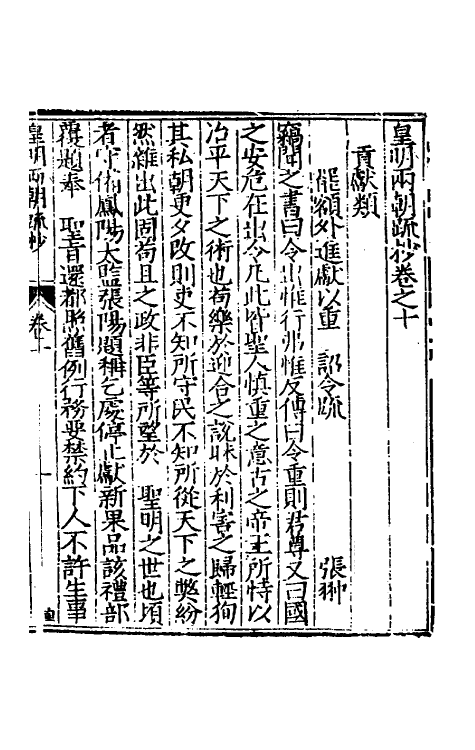 皇明兩朝疏抄卷之十
貢獻類
罷額外進獻以重 詔令疏 張翀
竊聞之書曰令出惟行弗惟反傳曰令重則君尊又曰國
之安危在出令凡此皆聖人慎重之意古之帝王所恃以
治平天下之術也苟樂於迎合之說昧於利害之歸輕狥
其私朝更夕改則吏不知所守民不知所從天下之獘紛
然雜出此固苟且之政非臣等所望於 聖明之世也頃
者守備鳳陽太監張陽題稱乞廢停止獻新果品該禮部
覆題奉 聖旨還都照舊例行務要禁約下人不許生事
皇明兩朝疏抄 卷十 一